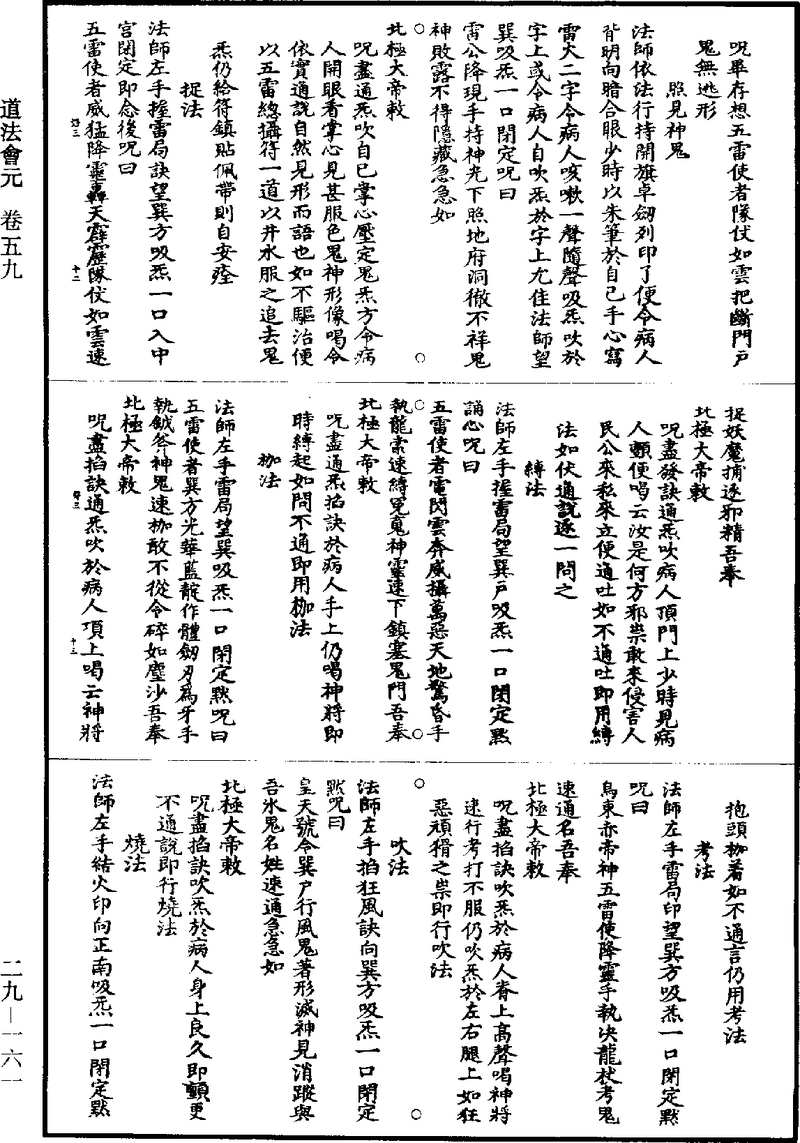 道法會元　卷五九
呪畢存想五雷使者隊仗如雲把斷門戶
鬼無逃形
照見神鬼
法師依法行持開旗卓劒列印了便令病人
背明向暗合眼少時以朱筆於自己手心寫
雷火二字令病人咳嗽一聲隨聲吸炁吹於
字上或令病人自吹炁於字上尤佳法師望
巽吸炁一口閉定呪曰
雷公降現手持神光下照地府洞徹不祥鬼
神敗露不得隱藏急急如
北極大帝敕
呪盡通炁吹自己掌心壓定鬼炁方令病
人開眼看掌心見甚服色鬼神形像喝令
依實通說自然見形而語也如不驅治便
以五雷總攝符一道以井水服之追去鬼
炁仍給符鎮貼佩帶則自安痊
捉法
法師左手握雷局訣望巽方吸炁一口入中
宮閉定即念後呪曰
五雷使者威猛降靈轟天霹靂隊仗如雲速
十二
捉妖魔捕逐邪精吾奉
北極大帝敕
呪盡發訣通炁吹病人頂門上少時見病
人顫便喝云汝是何方邪祟敢來侵害人
民公來私來立便通吐如不通吐即用縛
法如伏通說逐一問之
縛法
法師左手握雷局望巽戶吸炁一口閉定默
誦心呪曰
五雷使者電閃雲奔威攝萬惡天地驚昏手
執龍索速縛冤魂神靈速下鎮塞鬼門吾奉
北極大帝敕
呪盡通炁掐訣於病人手上仍喝神將即
時縛起如問不通即用枷法
枷法
法師左手雷局望巽吸炁一口閉定默呪曰
五雷使者巽方光華藍靛作體劒刃為牙手
執鉞斧神鬼速枷敢不從令碎如塵沙吾奉
北極大帝敕
呪盡掐訣通炁吹於病人頂上喝云神將
十三
抱頭枷著如不通言仍用考法
考法
法師左手雷局印望巽方吸炁一口閉定默
呪曰
烏東赤帝神五雷使降靈手執決龍杖考鬼
速通名吾奉
北極大帝敕
呪盡掐訣吹炁於病人脊上高聲喝神將
速行考打不服仍吹炁於左右腿上如狂
惡頑猾之祟即行吹法
吹法
法師左手掐狂風訣向巽方吸炁一口閉定
默呪曰
皇天號令巽戶行風鬼著形滅神見消蹤與
吾氷鬼名姓速通急急如
北極大帝敕
呪盡掐訣吹炁於病人身上良久即顫更
不通說即行燒法
燒法
法師左手結火印向正南吸炁一口閉定默
二九—一六一